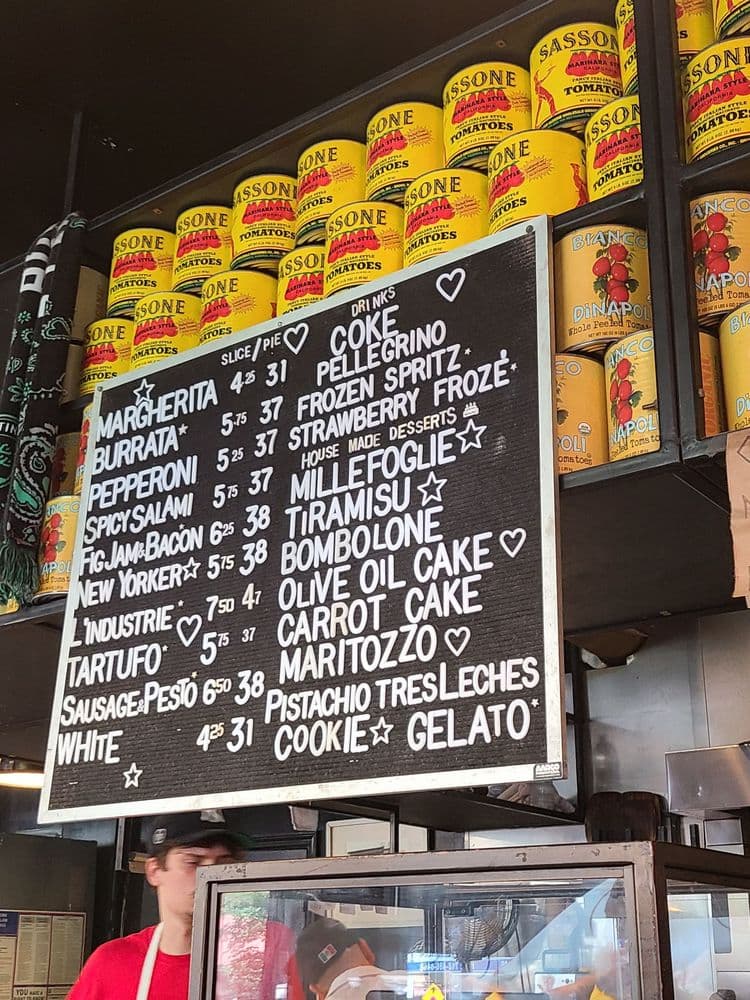 SASSONE
MARINARA STYLE
CALIFORNIA
FANCY ITALIAN STYLE
TOMATOES
BIANCO
DiNAPOLI
Whole Peeled Tomatoes
SLICE/PIE
MARGHERITA 4 25 31
BURRATA* 5 75 37
PEPPERONI 5 25 37
SPICY SALAMI 5 75 37
FIG JAM&BACON 6 25 38
NEW YORKER☆ 5 75 38
L'INDUSTRIE* 7 50 47
TARTUFO* ♡ 5 75 37
SAUSAGE&PESTO* 6 50 38
WHITE 4 25 31
DRINKS
COKE
PELLEGRINO
FROZEN SPRITZ*
STRAWBERRY FROZÉ*
HOUSE MADE DESSERTS
MILLEFOGLIE☆
TIRAMISU☆
BOMBOLONE
OLIVE OIL CAKE♡
CARROT CAKE
MARITOZZO♡
PISTACHIO TRES LECHES
COOKIE☆ GELATO*
AARCO